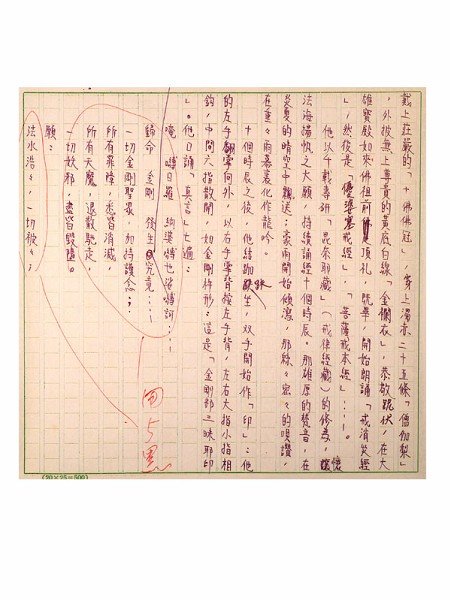 戴上莊嚴的「十佛佛冠，身上還衣二十五條「僧伽梨」
，外披無上尊貴的黃底白線「金襴衣」，恭敬跪伏，在大
雄寶殿如來佛祖前頂礼，既畢，開始朗誦「戒消災經
」，然後是「優婆塞戒經」，「菩薩戒本經」……。
他以千載專研「昆奈耶藏」（戒律經藏）的修為，懷
法海揚帆之大願，持續誦經十個時辰。那雄厚的梵音，在
炎夏的晴空中飄送；豪雨開始傾瀉，那綿々密々的唄讚，
在重々雨幕裏化作龍吟。
十個時辰之後，他結跏趺坐，双手開始作「印」：他
的左手翻掌向外，以右手掌背按左手背，左右大指小指相
鈎，中間六指散開，如金剛杵形；這是「金剛部三昧耶印
」。他口誦「真言」七遍：
唵 嚩日羅 納婆嚩也娑嚩訶……
歸命 金剛 發生 究竟……
一切金剛聖眾，加持護念；
所有罪障，悉皆消滅，
所有天魔，退散馳走，
一切妖邪，盡皆毀墮。
願：
法水浩々，一切被々；
一回5黑
(20×25=500)